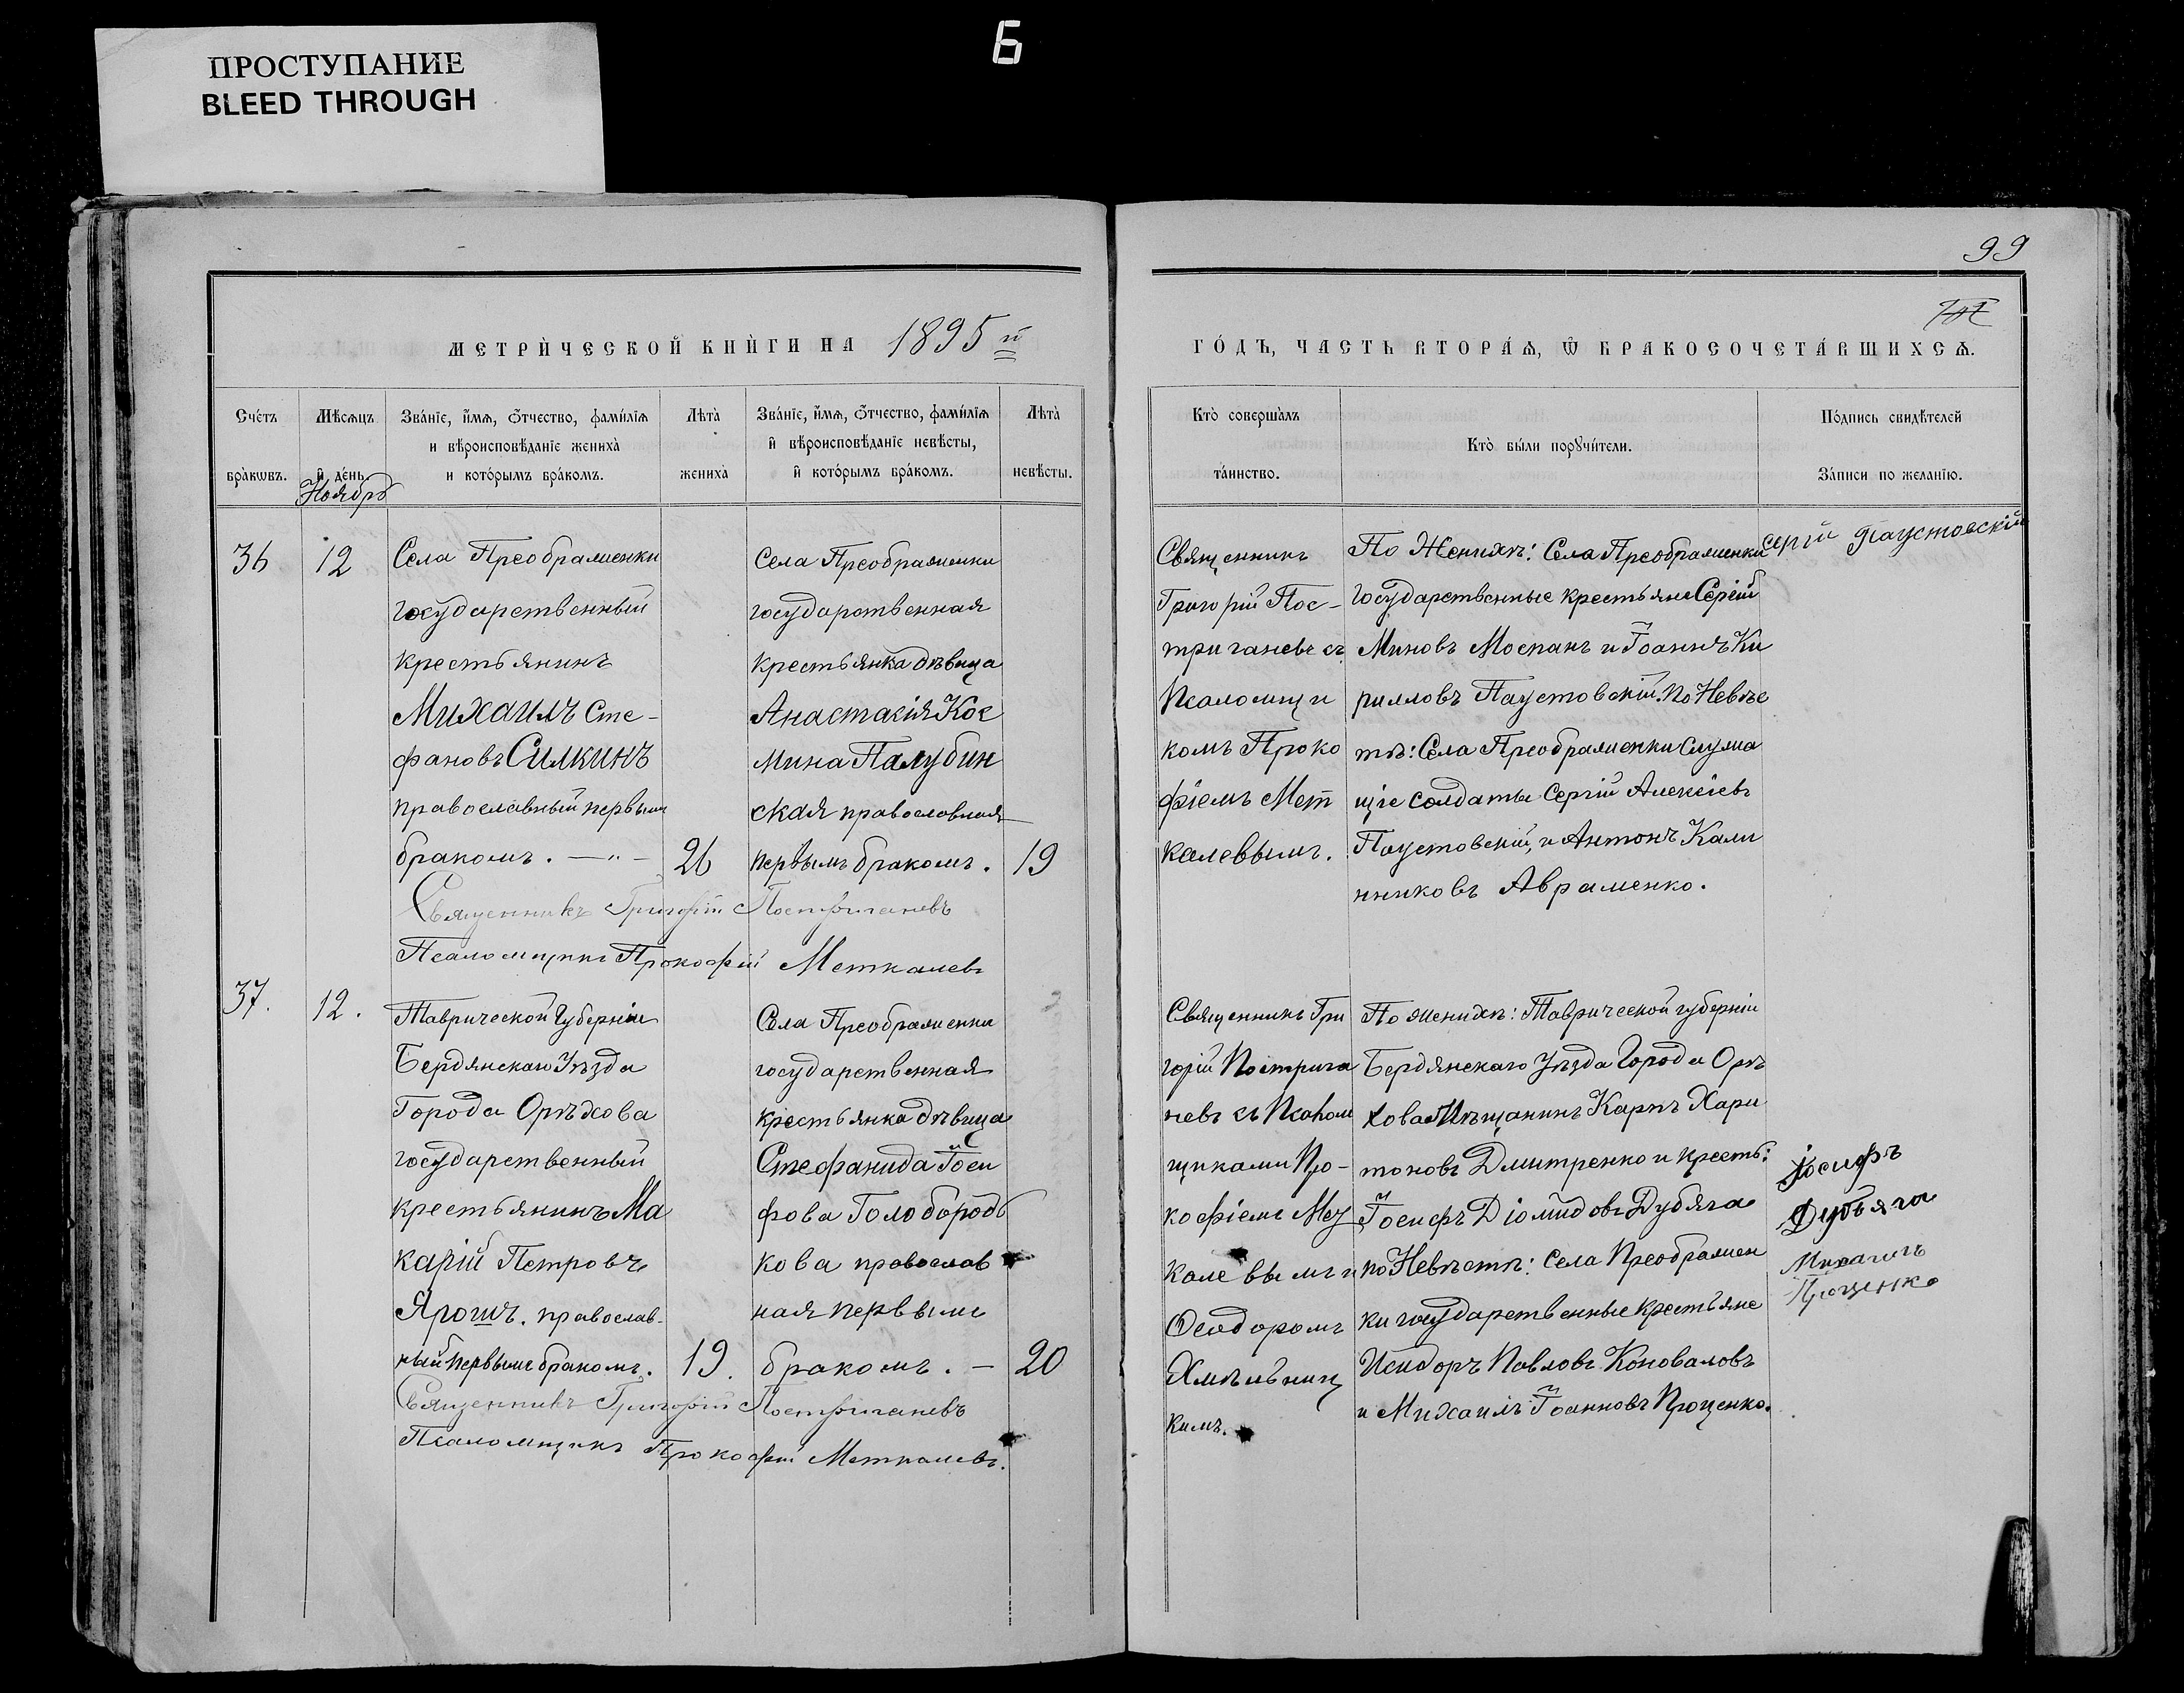 ПРОСТУПАНИЕ
BLEED THROUGH
Б
99
МЕТРИ́ЧЕСКОЙ КНИ́ГИ НА 1895й
ГО́ДЪ, ЧАСТЬ ВТОРА́Ѧ, Ѿ БРАКОСОЧЕТА́ВШИХСѦ.
Сче́тъ бра́кѡвъ.
Мѣ́сѧцъ и҆ де́нь.
Ноябрь
Зва́нїе, и҆́мѧ, ѻ҆́тчество, фами́лїѧ
и вѣроисповѣ́данїе жениха̀
и кото́рымъ бра́комъ.
Лѣта̀ жениха̀
Зва́нїе, и҆́мѧ, ѻ҆́тчество, фами́лїѧ
и҆ вѣроисповѣ́данїе невѣ́сты,
и҆ кото́рымъ бра́комъ.
Лѣта̀ невѣ́сты.
Кто̀ соверша́лъ та́инство.
Кто̀ бы́ли порꙋчи́тели.
По́дпись свидѣ́телей
За́писи по жела́нїю.
36
12
Села Преображенки
государственный
крестьянинъ
Михаилъ Сте-
фановъ Силкинъ
православный первымъ
бракомъ. —〃—
26
Села Преображенки
государственная
крестьянка дѣвица
Анастасія Кос
мина Палубин
ская православная
первымъ бракомъ.
19
Священникъ Григорій Постригачевъ
Псаломщикъ Прокофій Меткалевъ
Священникъ
Григорій Пос-
тригачевъ съ
Псаломщи
комъ Проко
фіемъ Мет
калевымъ.
По Женихѣ: Села Преображенки
государственные крестьяне Сергій
Миновъ Моспанъ и Іоаннъ Ки
рилловъ Паустовскій. По Невѣс
тѣ: Села Преображенки Служа
щіе солдаты Сергій Алексіевъ
Паустовскій, и Антонъ Кали
нниковъ Авраменко.
Сергій Паустовскій
37.
12.
Таврической Губерніи
Бердянскаго Уѣзда
Города Орѣхова
государственный
крестьянинъ Ма
карій Петровъ
Ярошъ. православ-
ный первымъ бракомъ.
19.
Села Преображенки
государственная
крестьянка дѣвица
Стефанида Іоси
фова Голобородь
кова православ
ная первымъ
бракомъ. —
20
Священникъ Григорій Постригачевъ
Псаломщикъ Прокофій Меткалевъ.
Священникъ Гри
горій Пострига
чевъ съ Псалом
щиками Про-
кофіемъ Мет
калевымъ и
Ѳеодоромъ
Хмѣльниц
кимъ.
По женихѣ: Таврической губерніи
Бердянскаго Уѣзда Города Орѣ
хова Мѣщанинъ Карпъ Хари
тоновъ Дмитренко и крестьян:
Іосифъ Діомидовъ Дубяга
по Невѣстѣ: Села Преображен
ки государственные крестьяне
Исидоръ Павловъ Коноваловъ
и Михаилъ Іоанновъ Проценко.
Іосифъ
Дубяга
Михаилъ
Проценко